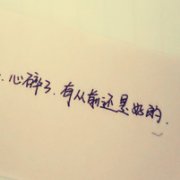 ．心碎了．有从前还是好的．